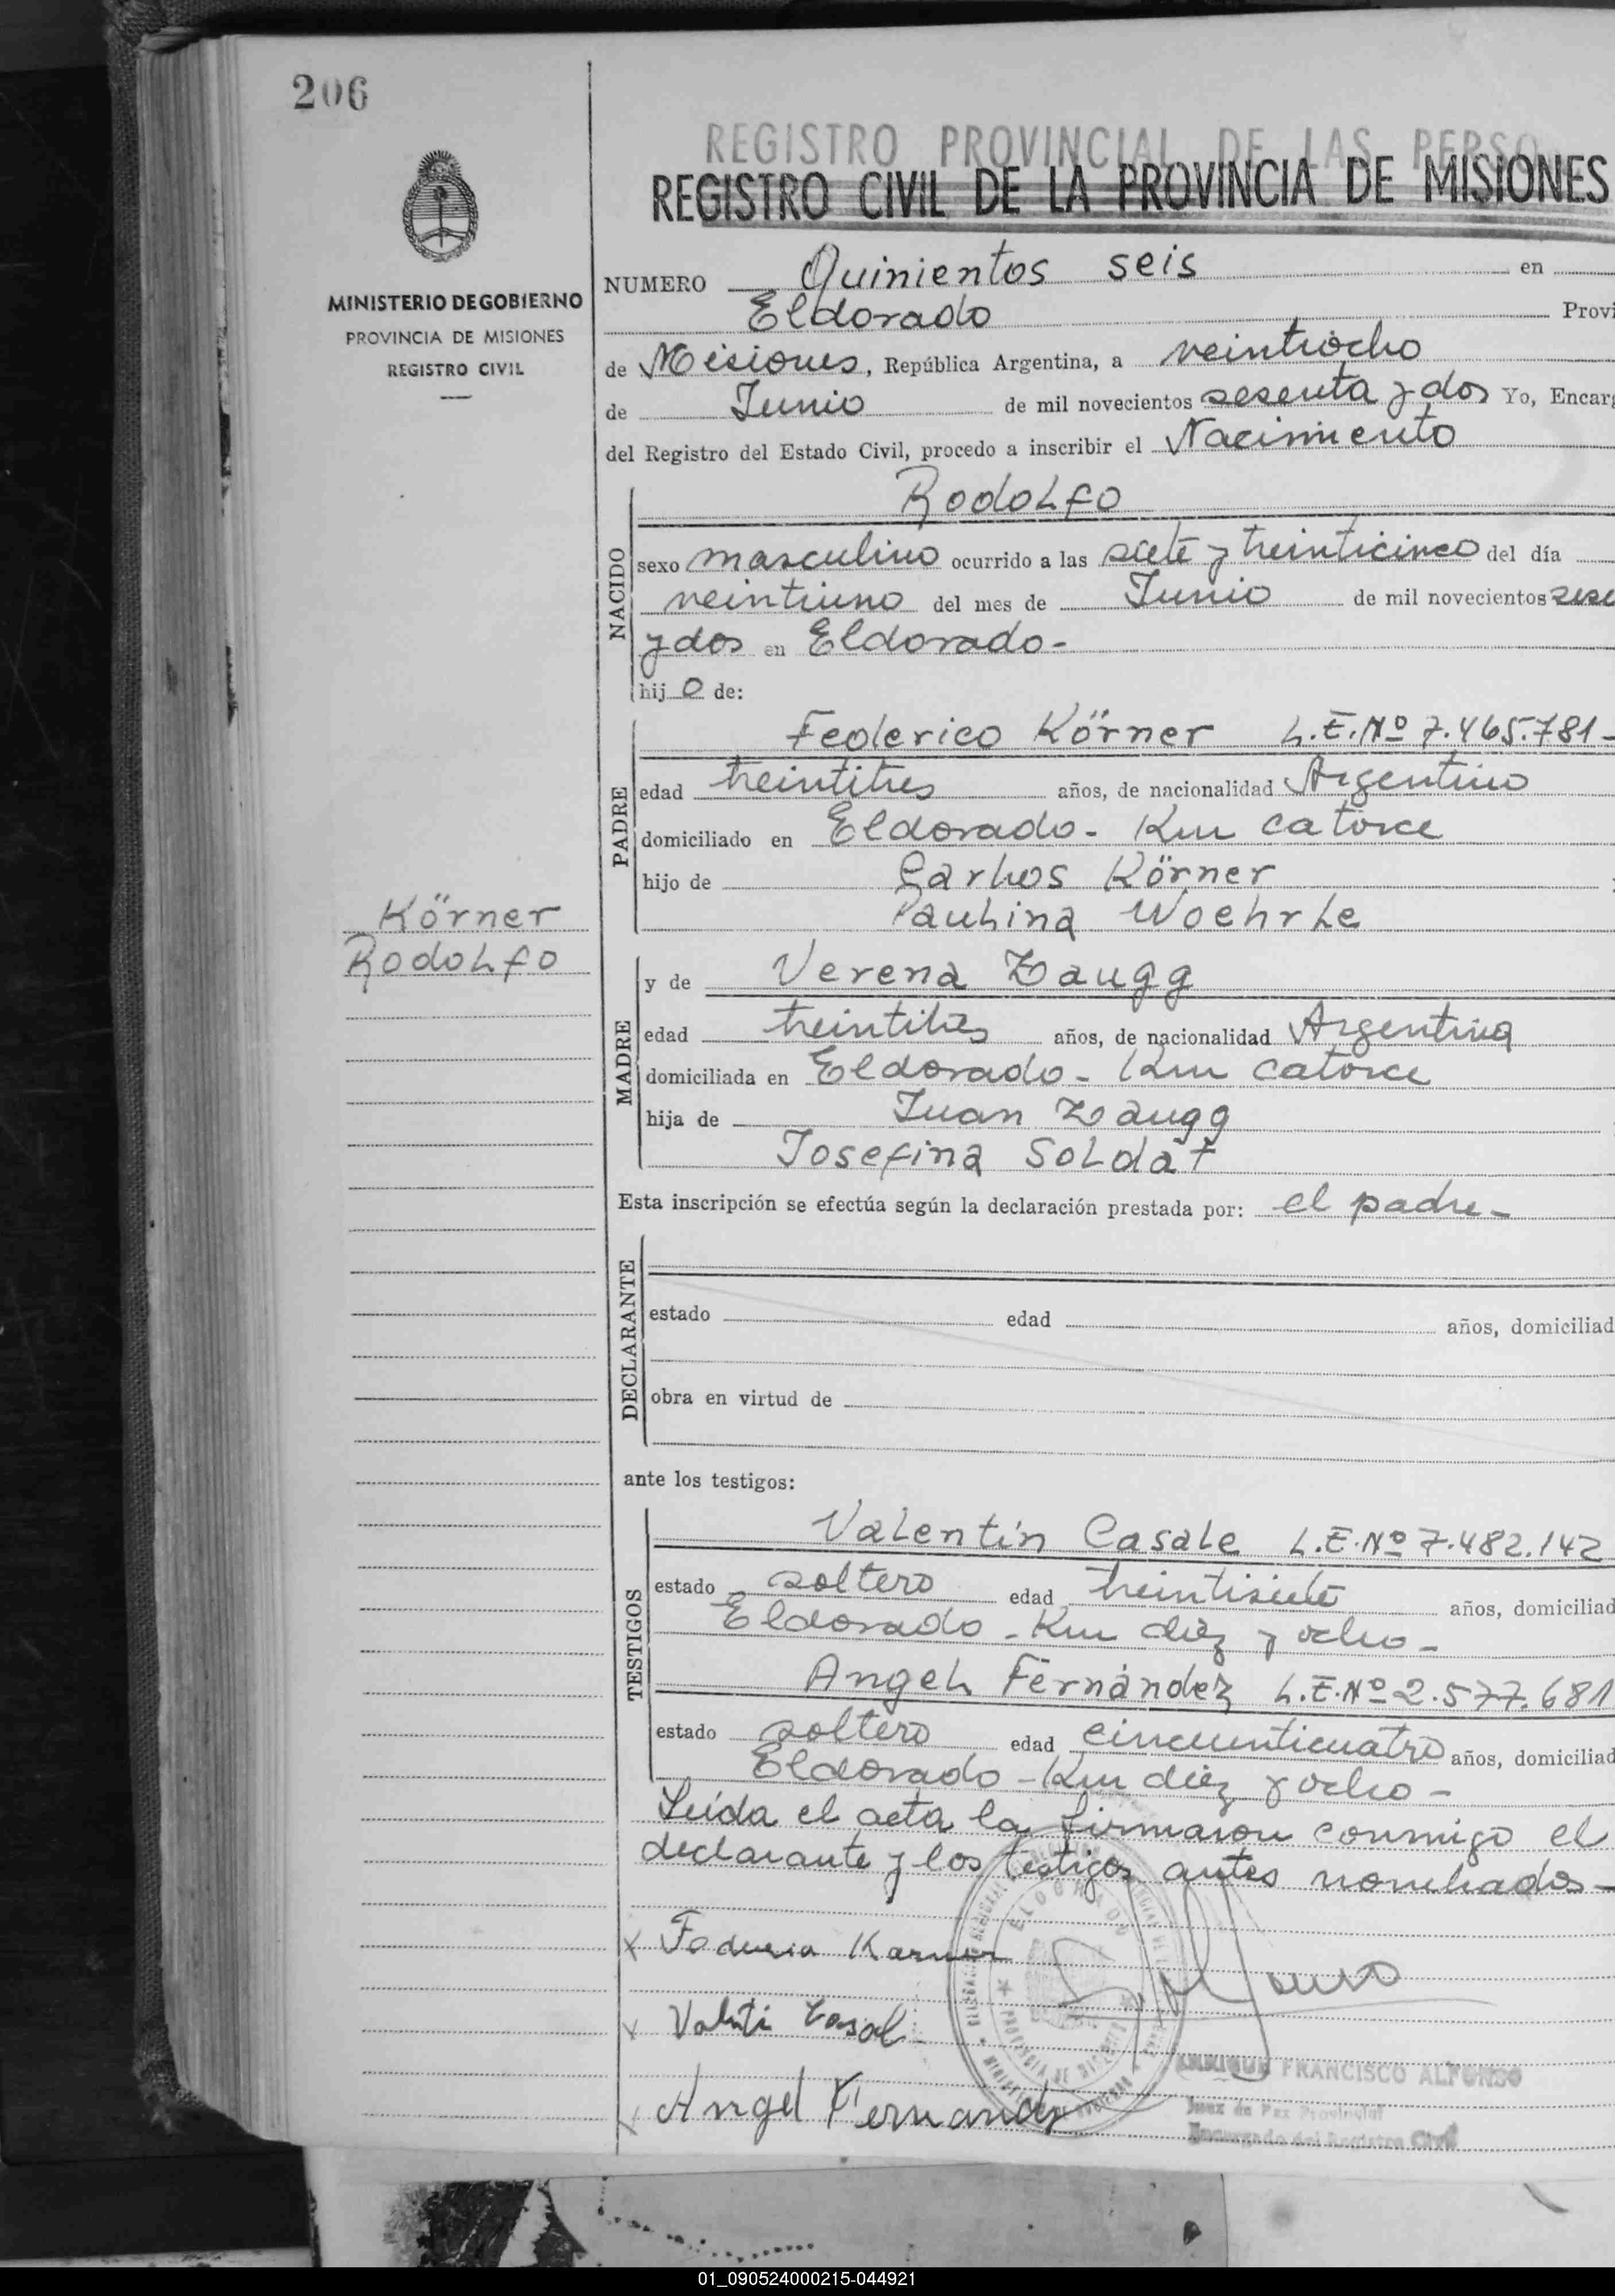 206
REGISTRO PROVINCIAL DE LAS PERSO
REGISTRO CIVIL DE LA PROVINCIA DE MISIONES
MINISTERIO DE GOBIERNO
PROVINCIA DE MISIONES
REGISTRO CIVIL
NUMERO Quinientos seis en
Eldorado Provi
de Misiones, República Argentina, a veintiocho
de Junio de mil novecientos sesenta y dos Yo, Encarg
del Registro del Estado Civil, procedo a inscribir el Nacimiento
NACIDO
Rodolfo
sexo masculino ocurrido a las siete y treinticinco del día
veintiuno del mes de Junio de mil novecientos sese
y dos en Eldorado-
hijo de:
PADRE
Federico Körner L.E.Nº 7.465.781-
edad treintitres años, de nacionalidad Argentino
domiciliado en Eldorado - Km catorce
hijo de Carlos Körner
Paulina Woehrle
Körner
Rodolfo
MADRE
y de Verena Zaugg
edad treintitres años, de nacionalidad Argentina
domiciliada en Eldorado - Km catorce
hija de Juan Zaugg
Josefina Soldat
Esta inscripción se efectúa según la declaración prestada por: el padre-
DECLARANTE
estado edad años, domiciliad
obra en virtud de
ante los testigos:
TESTIGOS
Valentín Casale L.E.Nº 7.482.142
estado soltero edad treintisiete años, domiciliad
Eldorado - Km diez y ocho -
Angel Fernández L.E.Nº 2.577.681
estado soltero edad cincuenticuatro años, domiciliad
Eldorado - Km diez y ocho -
Leída el acta la firmaron conmigo el
declarante y los testigos antes nombrados-
x
x
x Angel Fernandez
ELDORADO
PROVINCIA DE MISIONES
ENRIQUE FRANCISCO ALFONSO
Juez de Paz Provincial
Encargado del Registro Civil
01_090524000215-044921